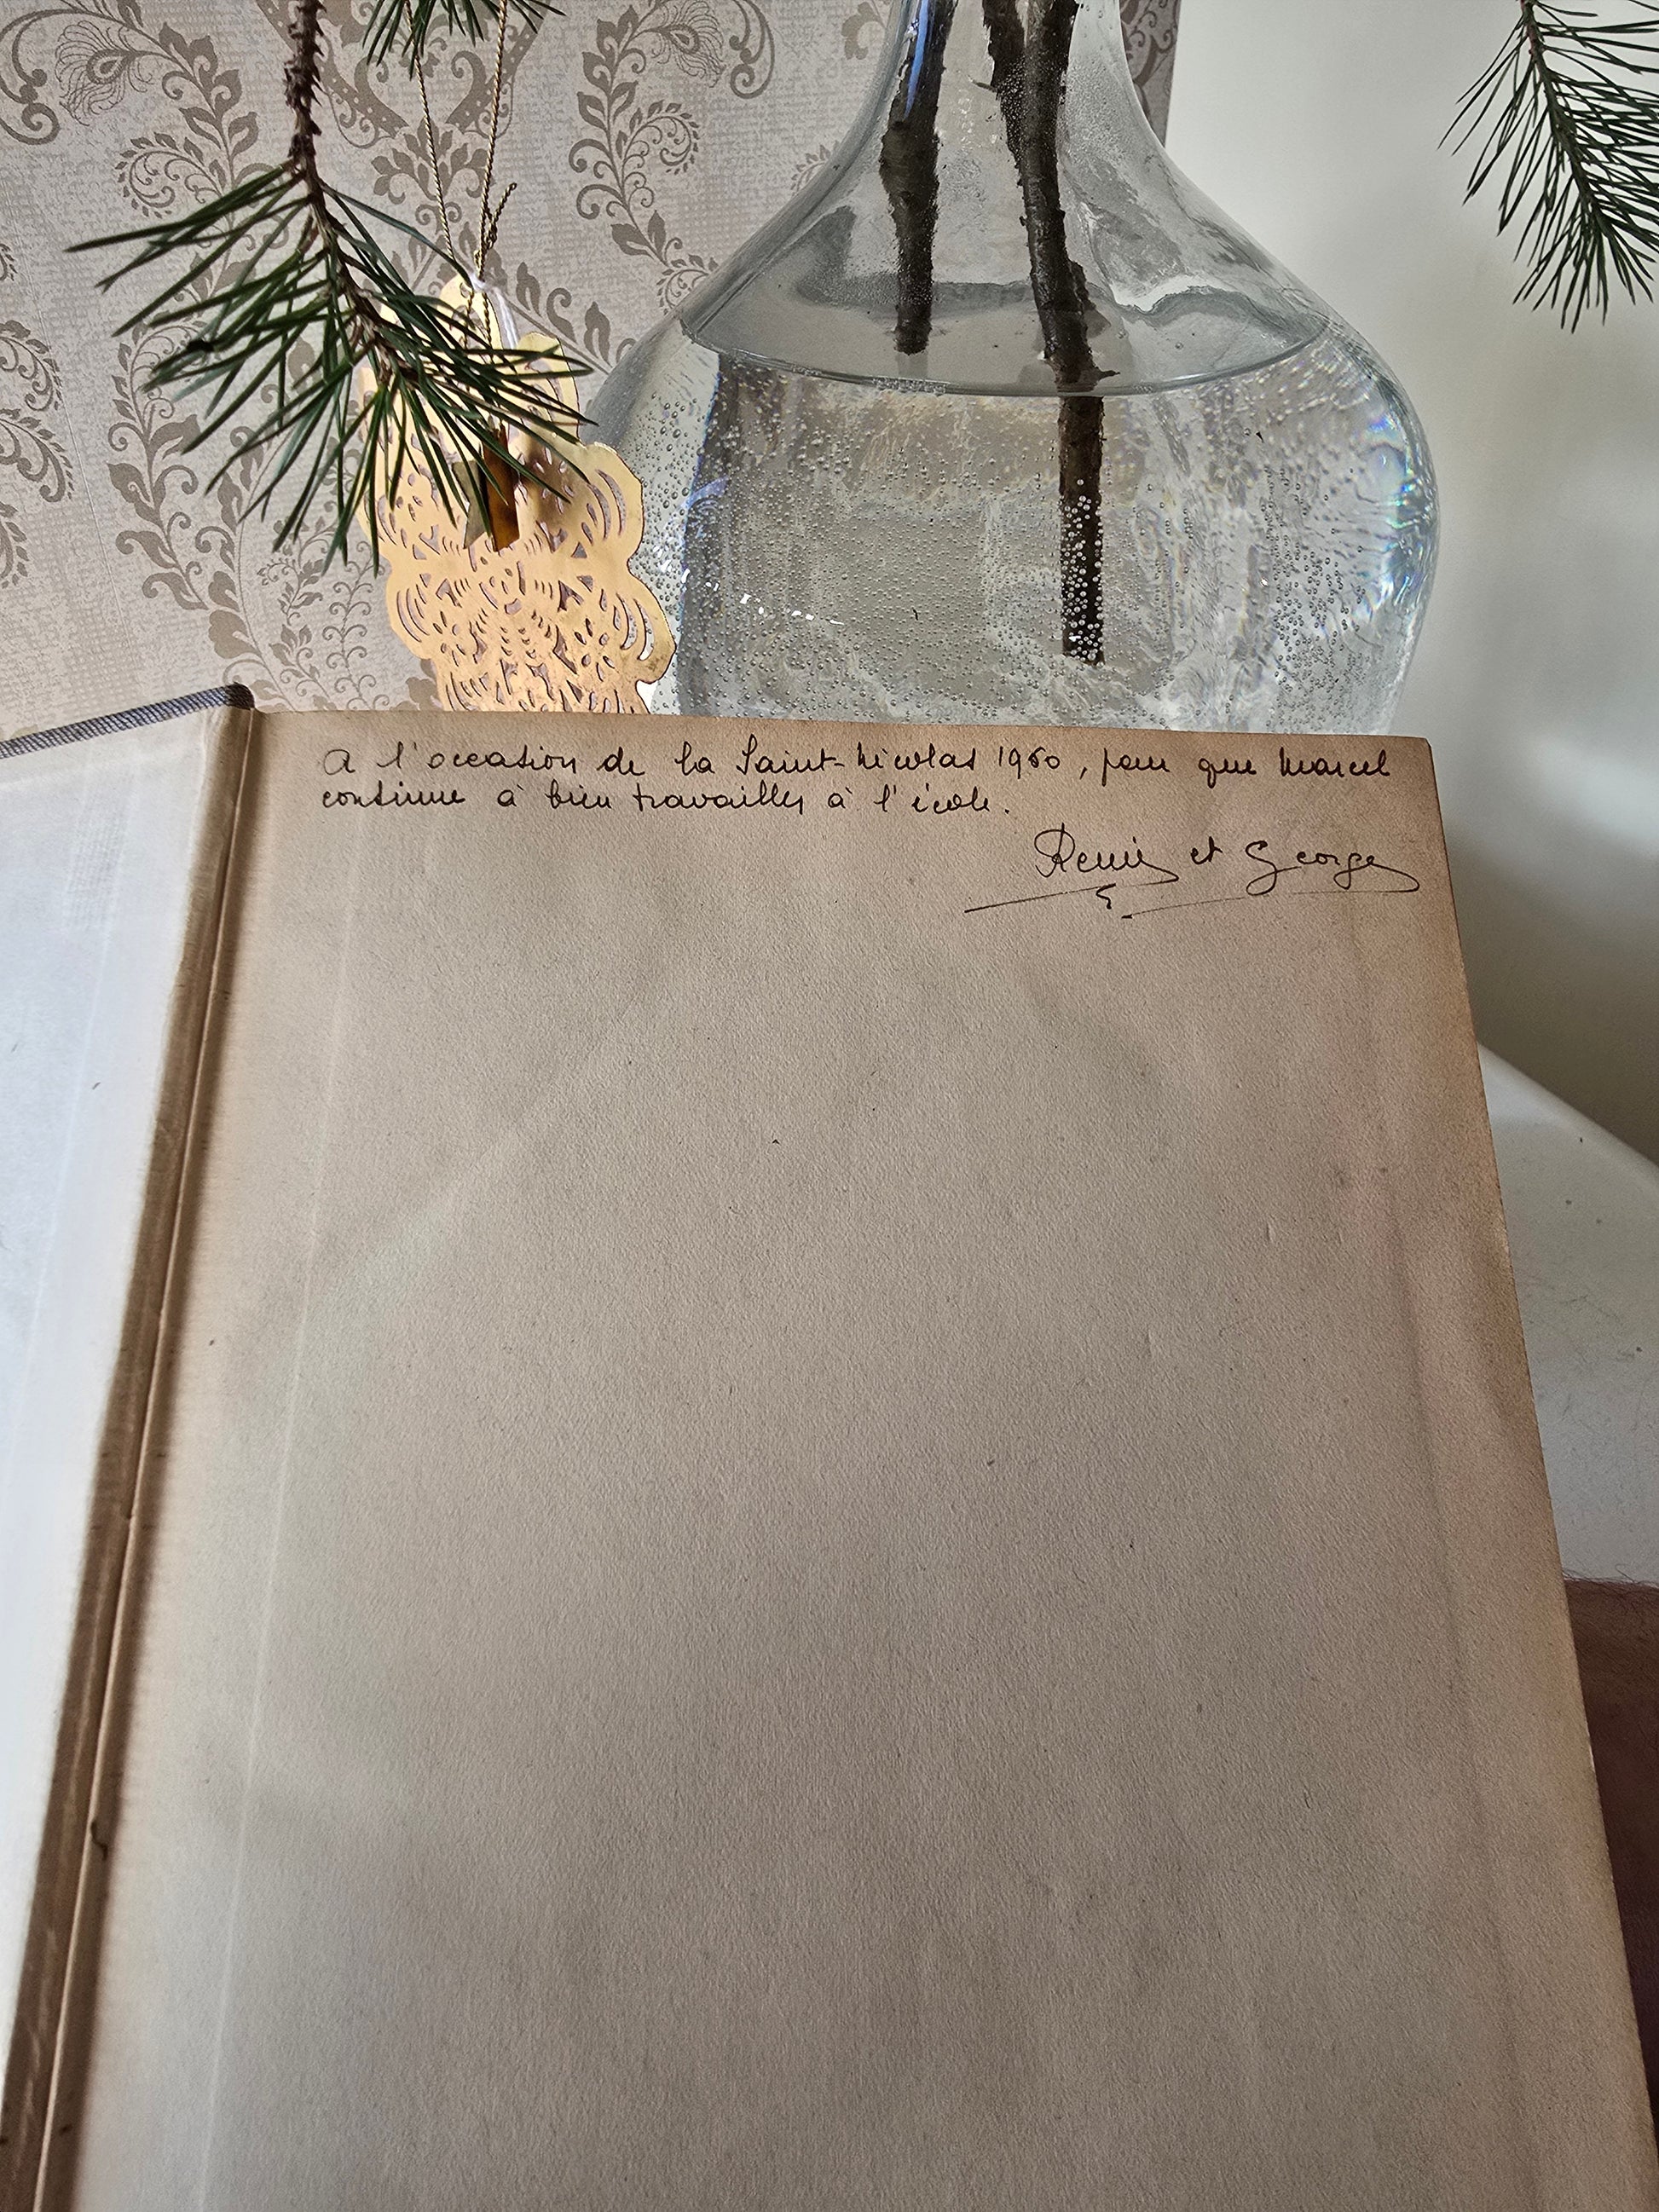 A l'occasion de la Saint-Nicolas 1960, pour que Marcel
continue à bien travailler à l'école.
et George